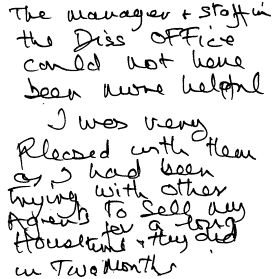 The manager + staff in
the Diss OFFice
could not have
been more helpful
I was very
Pleased with them
as I had been
Trying with other
Agents To Sell my
House for a long
time & They did
in Two Months